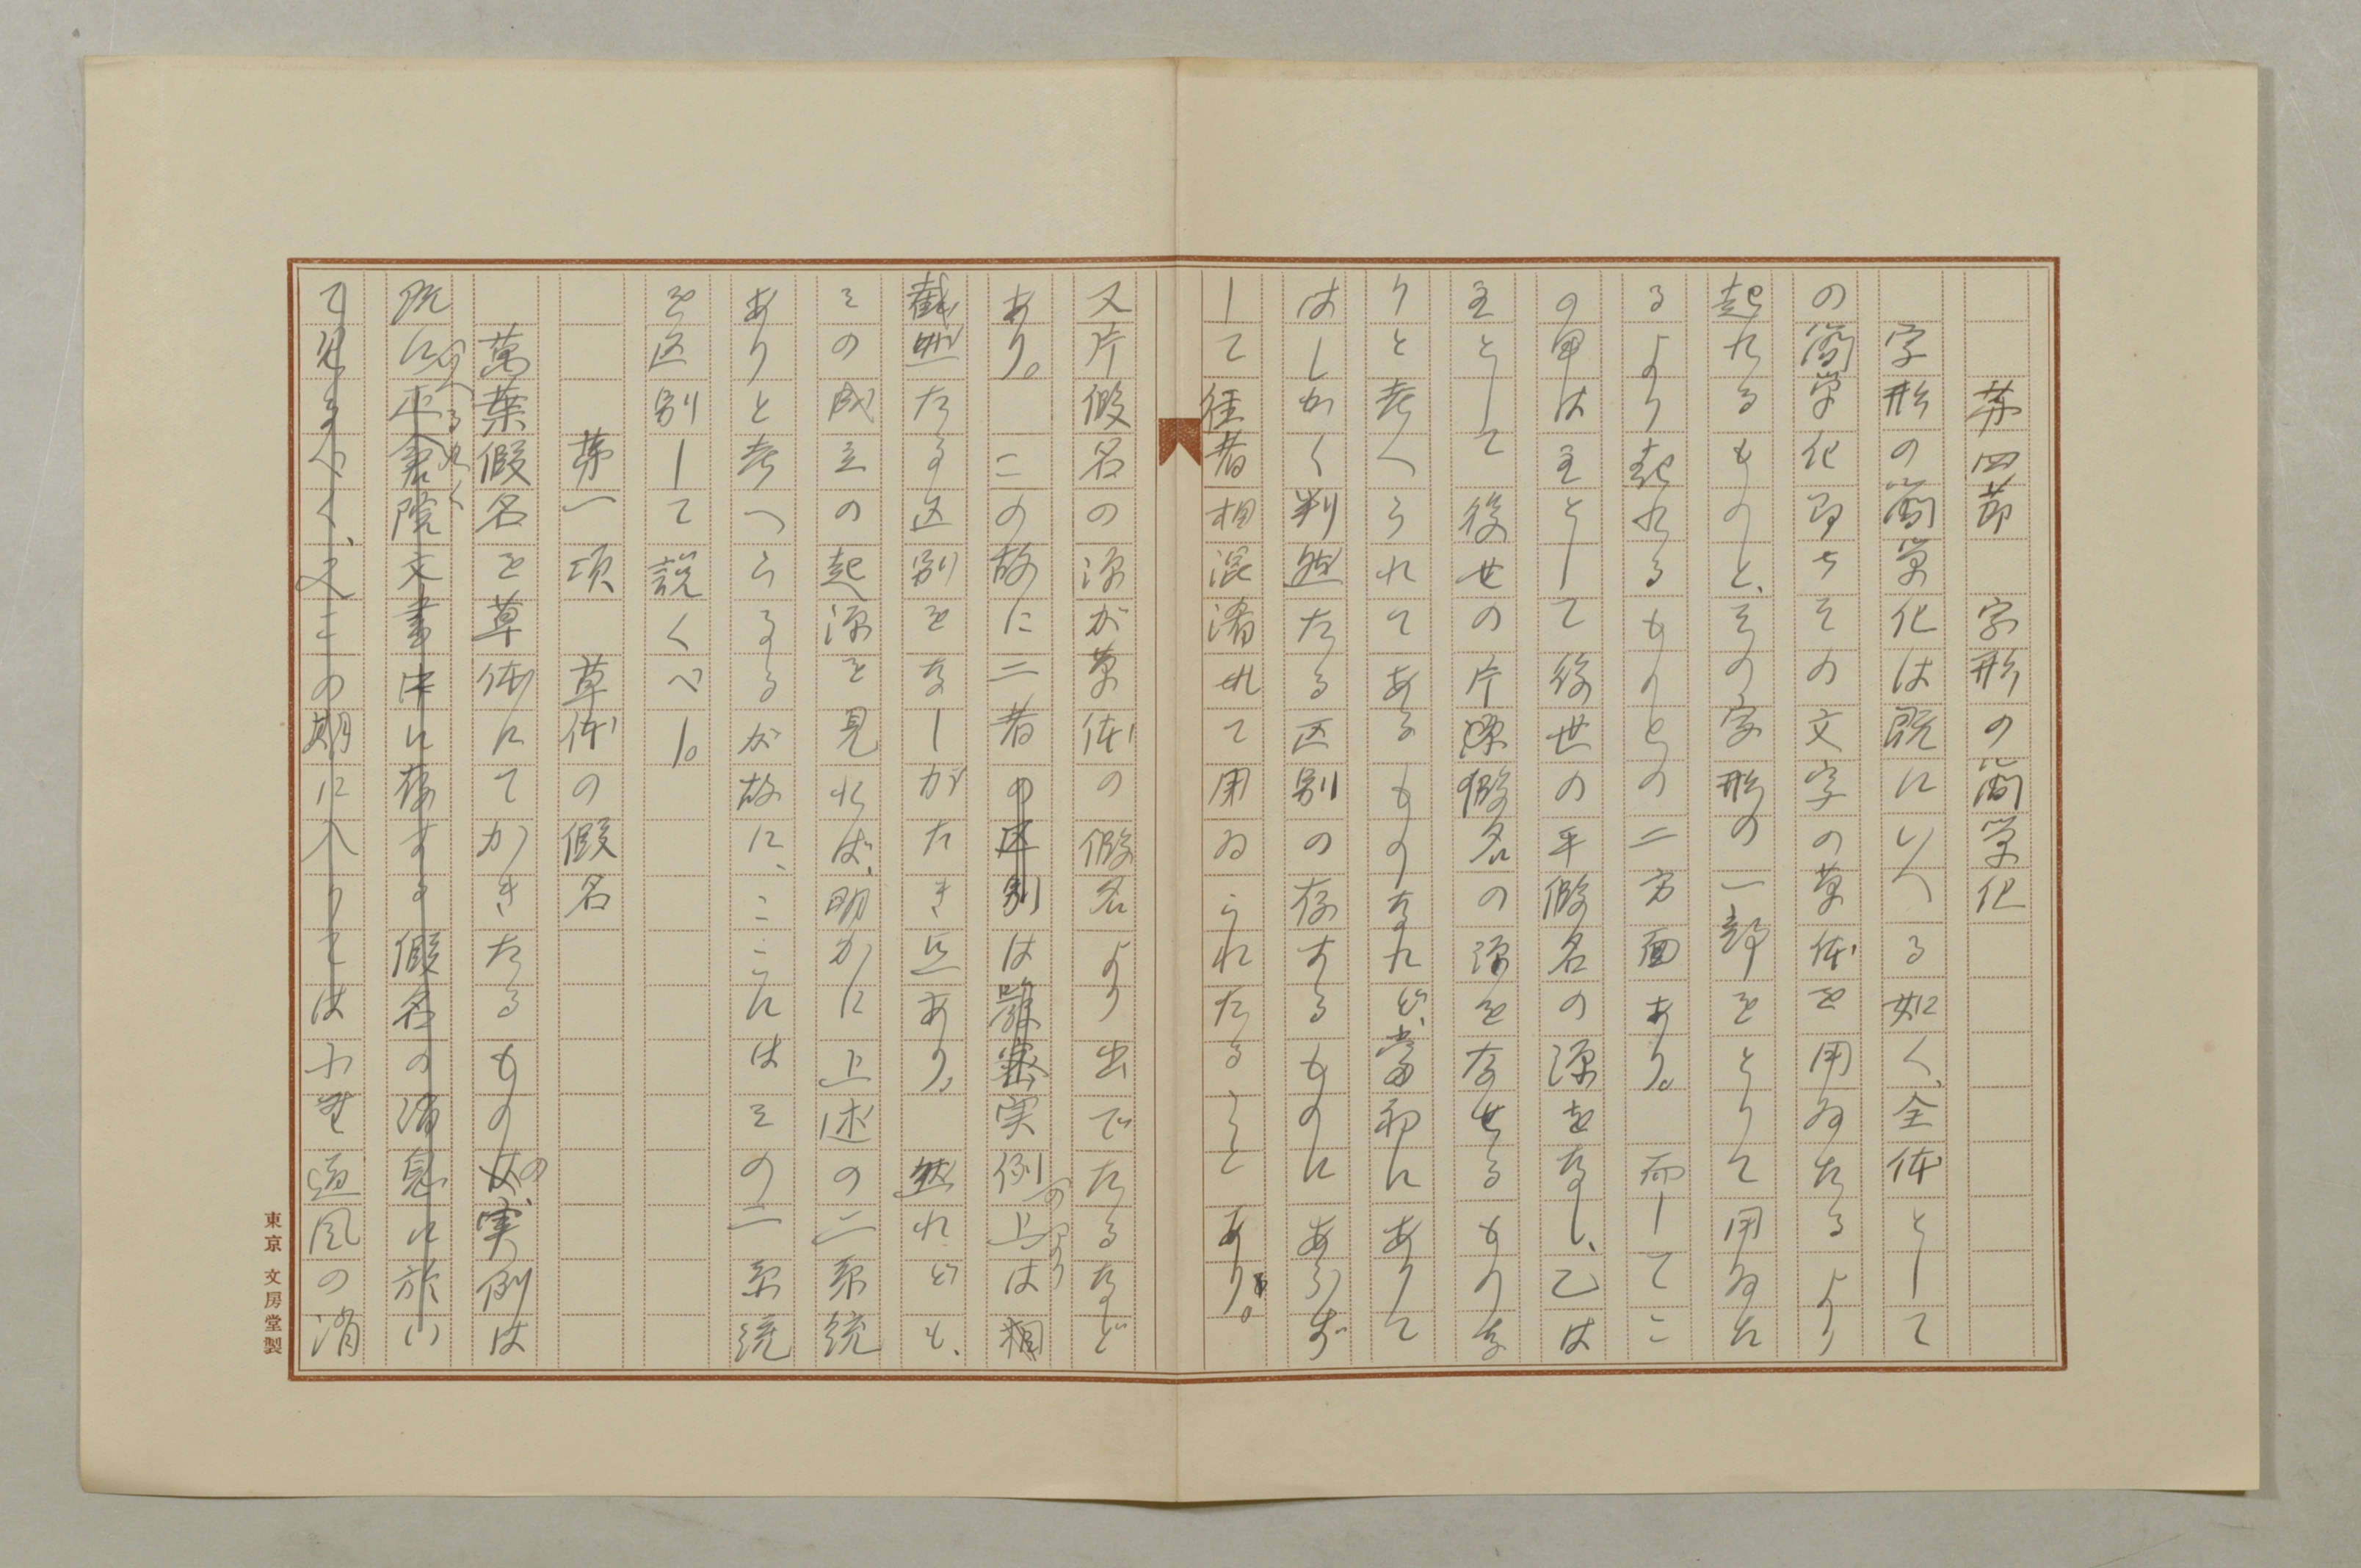 第四節　字形の簡單化
字形の簡單化は既にいへる如く、全体として
の簡單化即ちその文字の草体を用ゐたるより
起れるものと、その字形の一部をとりて用ゐた
るより起れるものとの二方面あり。而してこ
の甲は主として後世の平假名の源をなし、乙は
主として後世の片假名の源をなせるものな
りと考へられてあるものなれど、當初にありて
はしかく判然たる区別の存するものにあらず
して往者相混淆せれて用ゐられたることあり。
又片假名の源が草体の假名より出でたるなど
あり。この故に二者の区別は嚴密実例の上よりは
截然たる区別をなしがたき点あり。然れども、
その成立の起源を見れば、明かに上述の二系統
ありと考へらるるが故に、ここにはその二系統
を区別して説くべし。
第一項　草体の假名
萬葉假名を草体にてかきたるものの実例は
既にいへる如く正倉院文書中に存する假名の消息に於い
て見るべく、又この期に入りては小野道風の消
東京 文房堂製